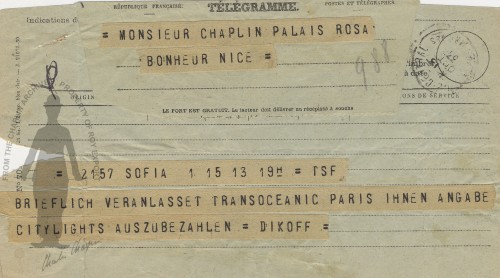 Indications de
RÉPUBLIQUE FRANÇAISE.
TÉLÉGRAMME.
POSTES ET TÉLÉGRAPHES
= MONSIEUR CHAPLIN PALAIS ROSA
BONHEUR NICE =
988
ORIGIN
DE SERVICE.
LE PORT EST GRATUIT. Le facteur doit délivrer un récépissé à souche
FROM THE CHAPLIN ARCHIVES
PROPERTY OF ROY EXPORT
= 2157 SOFIA 1 15 13 19H = TSF
BRIEFLICH VERANLASSET TRANSOCEANIC PARIS IHNEN ANGABE
CITYLIGHTS AUSZUBEZAHLEN = DIKOFF =
Charlie Chaplin